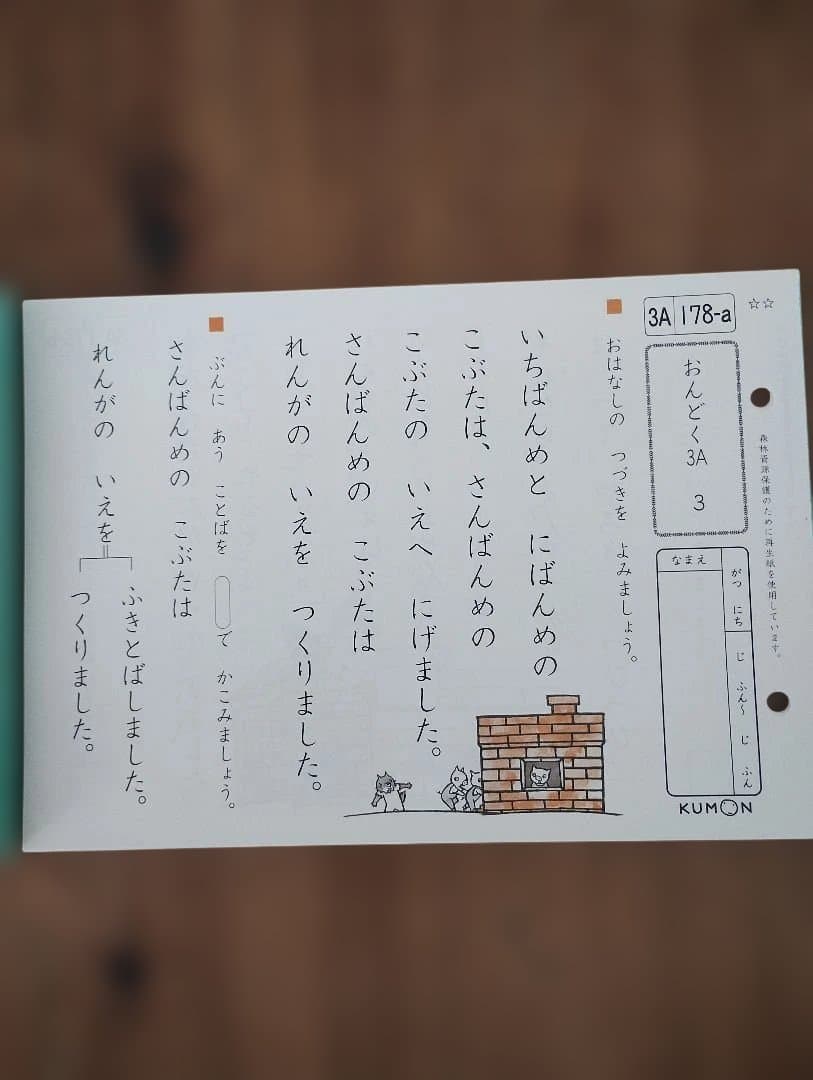 ☆☆
3A 178-a
おんどく3A 3
森林資源保護のために再生紙を使用しています。
がつ にち じ ふん〜 じ ふん
なまえ
KUMON
■ おはなしの つづきを よみましょう。
いちばんめと にばんめの
こぶたは、さんばんめの
こぶたの いえへ にげました。
さんばんめの こぶたは
れんがの いえを つくりました。
■ ぶんに あう ことばを で かこみましょう。
さんばんめの こぶたは
れんがの いえを
ふきとばしました。
つくりました。